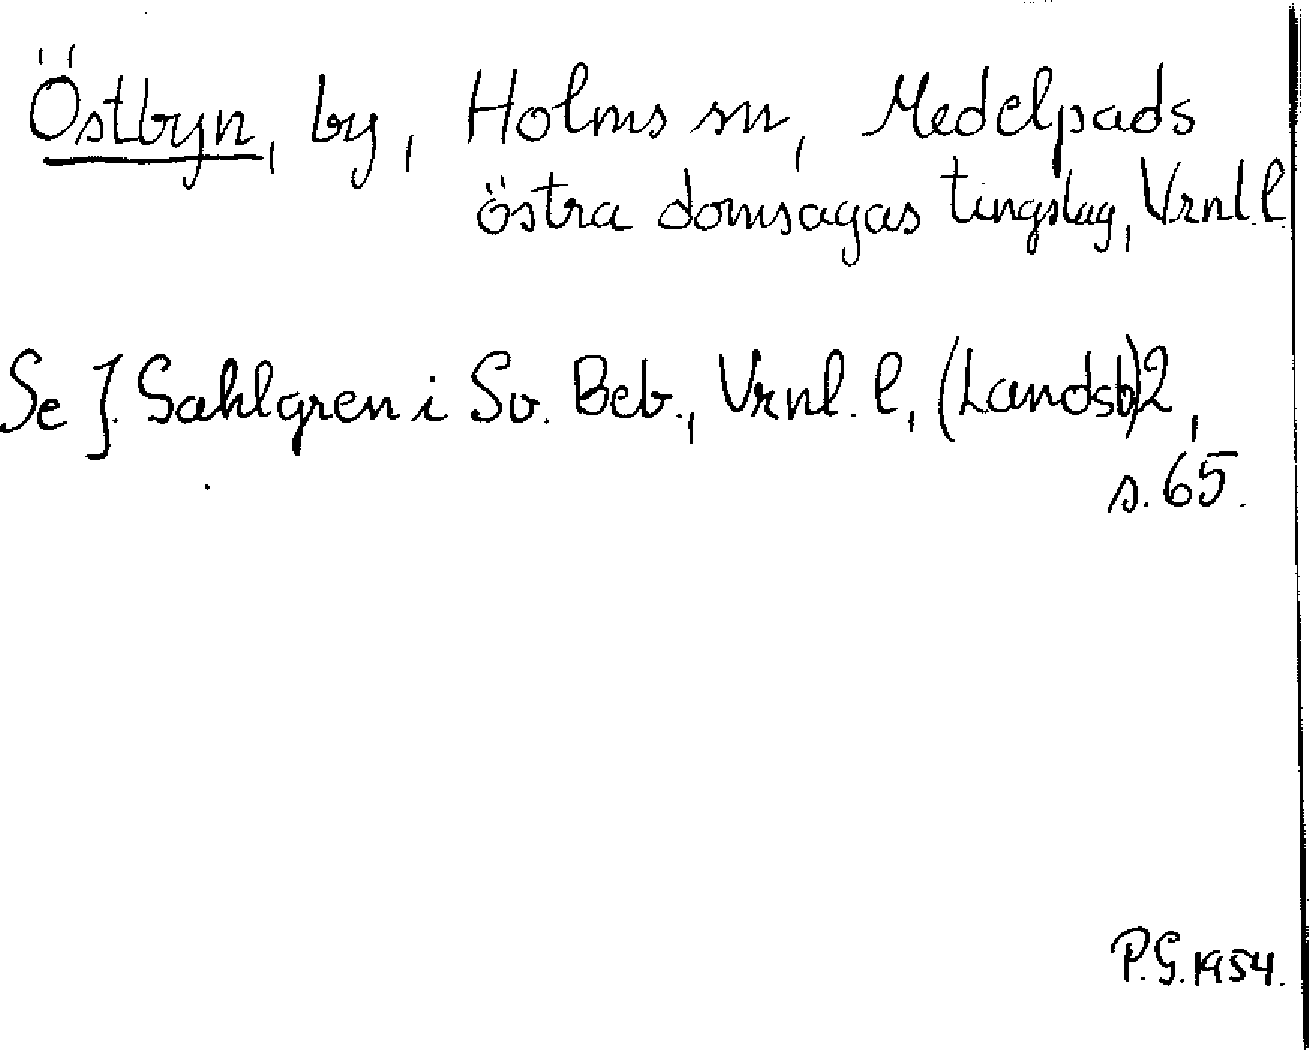 Östbyn, by, Holms sn, Medelpads
östra domsagas tingslag, Vrnl.l.
Se J. Sahlgren i Sv. Beb., Vrnl. l, (Landsb)2,
s. 65.
P.G. 1954.